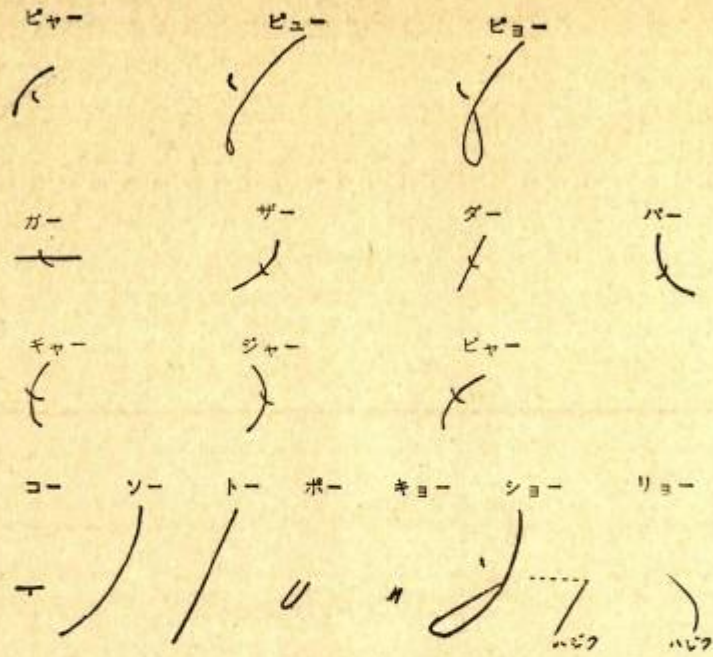 ピャー ピュー ピョー
ガー ザー ダー パー
ギャー ジャー ビャー
コー ソー トー ポー キョー ショー リョー
ハジク ハジク